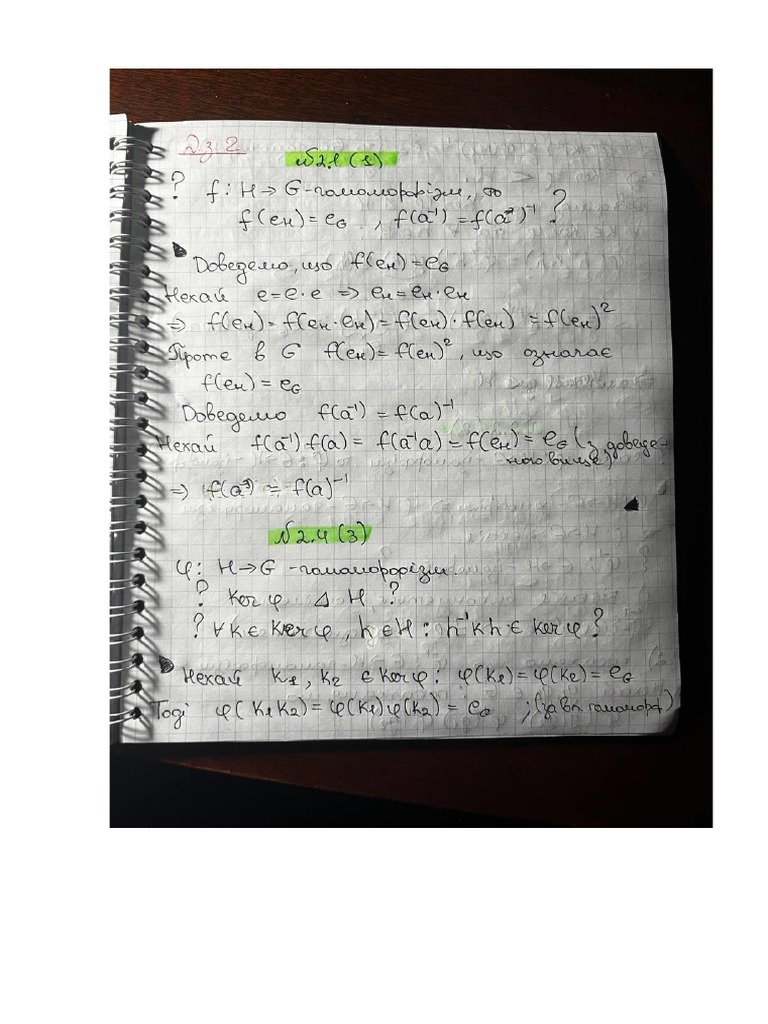 Д.з 2
№2.1 (1)
? f: H → G - гомоморфізм, то
f(eн) = eG , f(a⁻¹) = f(a)⁻¹ ?
Доведемо, що f(eн) = eG
Нехай e = e·e ⇒ eн = eн·eн
⇒ f(eн) = f(eн·eн) = f(eн)·f(eн) = f(eн)²
Проте в G f(eн) = f(eн)², що означає
f(eн) = eG
Доведемо f(a⁻¹) = f(a)⁻¹
Нехай f(a⁻¹)·f(a) = f(a⁻¹a) = f(eн) = eG (з доведе-
ного вище)
⇒ f(a⁻¹) = f(a)⁻¹
№2.4 (3)
φ: H → G - гомоморфізм.
? Ker φ Δ H ?
? ∀ k ∈ Ker φ, h ∈ H : h⁻¹kh ∈ Ker φ ?
Нехай k₁, k₂ ∈ Ker φ: φ(k₁) = φ(k₂) = eG
Тоді φ(k₁k₂) = φ(k₁)φ(k₂) = eG ; (за вл. гоморф.)